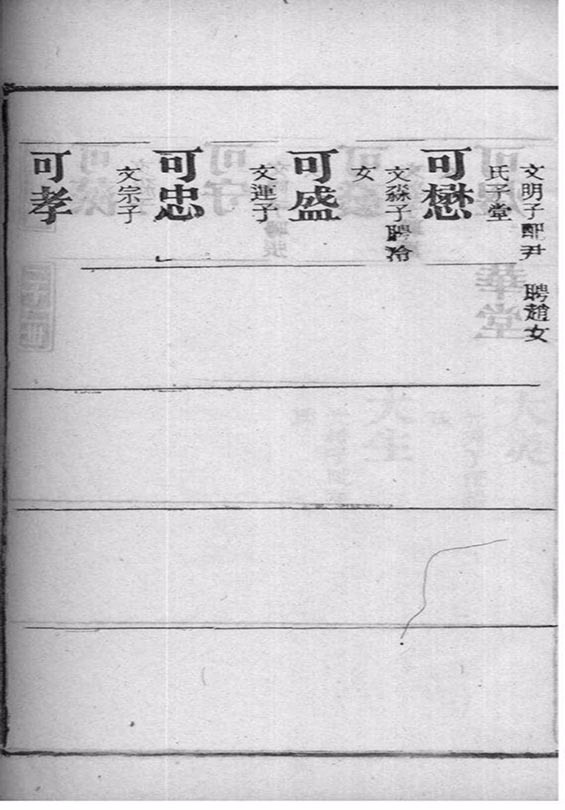 文明子配尹
氏子堂
可懋
文淼子聘冷
女
可盛
文運子
可忠
文宗子
可孝
聘趙女